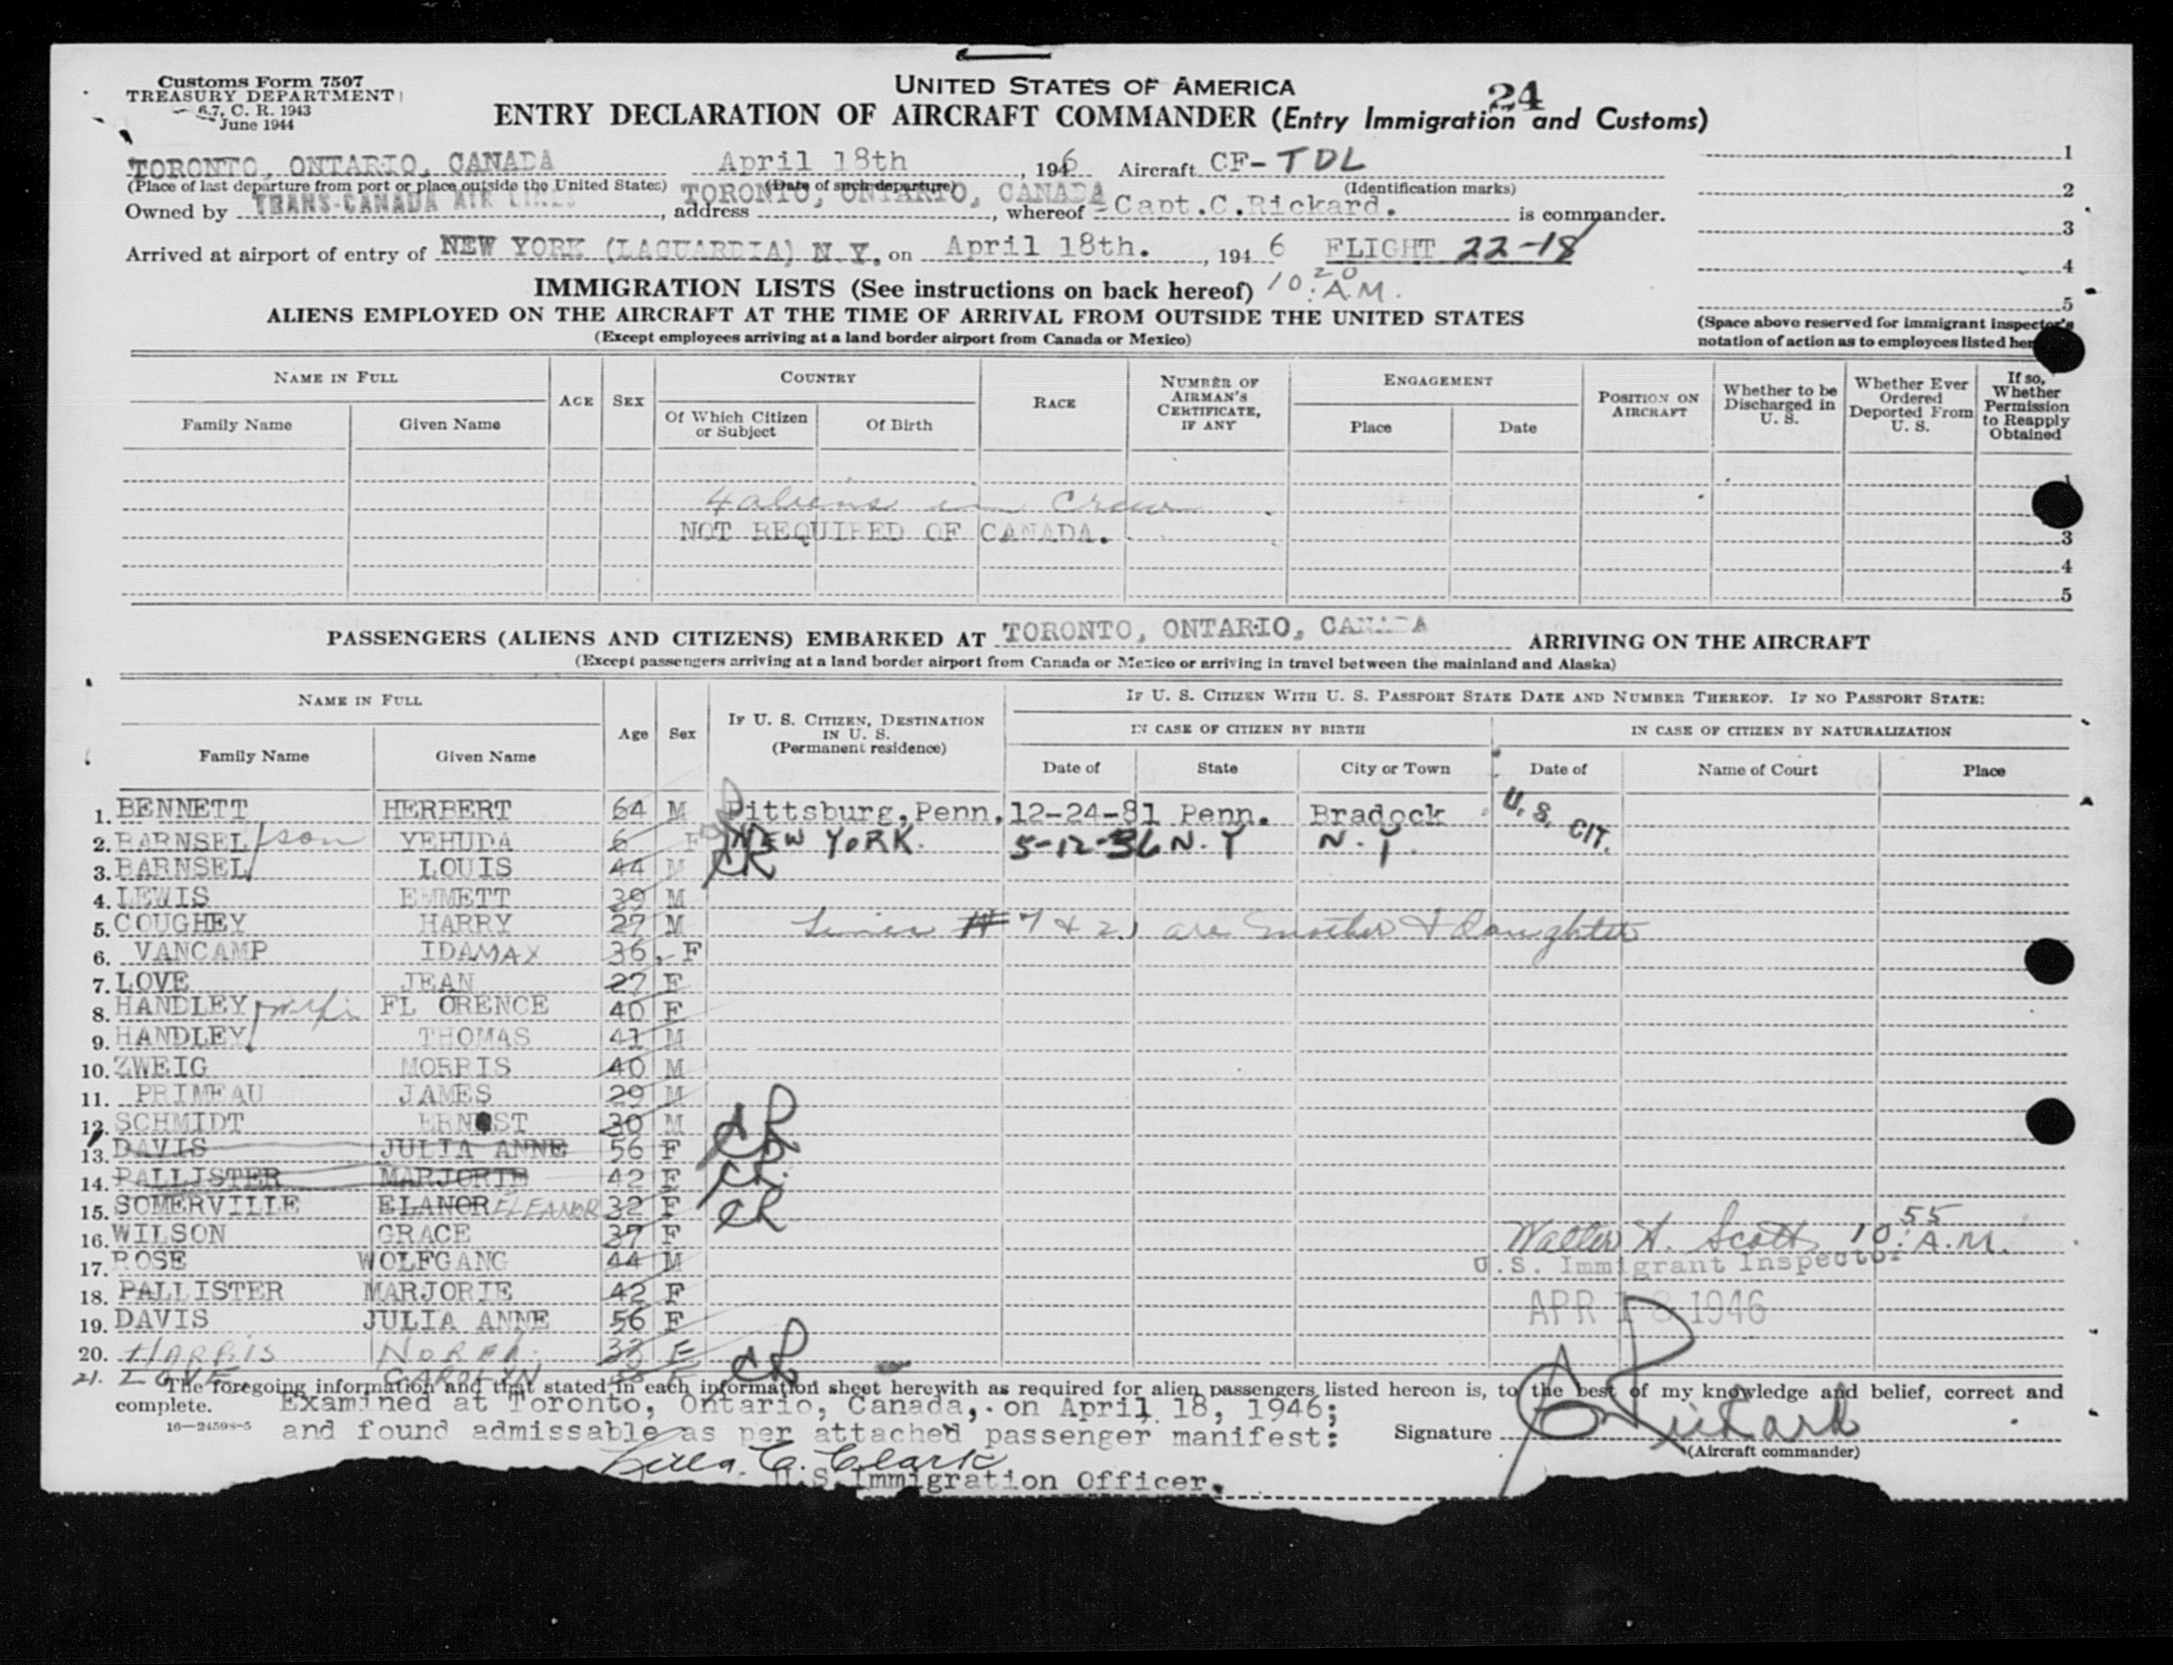 Customs Form 7507
TREASURY DEPARTMENT
6.7, C. R. 1943
June 1944
UNITED STATES OF AMERICA
24
ENTRY DECLARATION OF AIRCRAFT COMMANDER (Entry Immigration and Customs)
TORONTO, ONTARIO, CANADA April 18th, 1946 Aircraft CF-TDL
(Place of last departure from port or place outside the United States) (Date of such departure) (Identification marks)
Owned by TRANS-CANADA AIR LINES, address TORONTO, ONTARIO, CANADA, whereof Capt.C.Rickard. is commander.
Arrived at airport of entry of NEW YORK (LAGUARDIA) N.Y. on April 18th., 1946 FLIGHT 22-18
IMMIGRATION LISTS (See instructions on back hereof) 10:20 A.M.
ALIENS EMPLOYED ON THE AIRCRAFT AT THE TIME OF ARRIVAL FROM OUTSIDE THE UNITED STATES
(Except employees arriving at a land border airport from Canada or Mexico)
1
2
3
4
5
(Space above reserved for immigrant inspector's
notation of action as to employees listed
NAME IN FULL AGE SEX COUNTRY RACE NUMBER OF AIRMAN'S CERTIFICATE, IF ANY ENGAGEMENT POSITION ON AIRCRAFT Whether to be Discharged in U. S. Whether Ever Ordered Deported From U. S. If so, Whether Permission to Reapply Obtained
Family Name Given Name Of Which Citizen or Subject Of Birth Place Date
1
4 aliens in crew
NOT REQUIRED OF CANADA. 3
4
5
PASSENGERS (ALIENS AND CITIZENS) EMBARKED AT TORONTO, ONTARIO, CANADA ARRIVING ON THE AIRCRAFT
(Except passengers arriving at a land border airport from Canada or Mexico or arriving in travel between the mainland and Alaska)
NAME IN FULL Age Sex IF U. S. CITIZEN, DESTINATION IN U. S. (Permanent residence) IF U. S. CITIZEN WITH U. S. PASSPORT STATE DATE AND NUMBER THEREOF. IF NO PASSPORT STATE:
IN CASE OF CITIZEN BY BIRTH IN CASE OF CITIZEN BY NATURALIZATION
Family Name Given Name Date of State City or Town Date of Name of Court Place
1. BENNETT HERBERT 64 M Pittsburg, Penn. 12-24-81 Penn. Bradock U.S. CIT.
2. BARNSEL son YEHUDA 6 F NEW YORK. 5-12-36 N.Y N.Y.
3. BARNSEL LOUIS 44 M CR
4. LEWIS EMMETT 39 M
5. COUGHEY HARRY 27 M Lines # 7 & 21 are mother & daughter
6. VANCAMP IDAMAX 36 F
7. LOVE JEAN 27 F
8. HANDLEY wife FL ORENCE 40 F
9. HANDLEY THOMAS 41 M
10. ZWEIG MORRIS 40 M
11. PRIMEAU JAMES 29 M
12. SCHMIDT ERNEST 30 M CR
13. DAVIS JULIA ANNE 56 F
14. PALLISTER MARJORIE 42 F CR.
15. SOMERVILLE ELANOR ELEANOR 32 F CR
16. WILSON GRACE 37 F Walter H. Scott 10:55 A.M.
17. ROSE WOLFGANG 44 M U.S. Immigrant Inspector
18. PALLISTER MARJORIE 42 F
19. DAVIS JULIA ANNE 56 F APR 18 1946
20. HARRIS NORAH 33 F CR
21. LOVE CAROLYN F
The foregoing information and that stated in each information sheet herewith as required for alien passengers listed hereon is, to the best of my knowledge and belief, correct and
complete. Examined at Toronto, Ontario, Canada, on April 18, 1946;
16-24598-5 and found admissable as per attached passenger manifest: Signature C Rickard
(Aircraft commander)
C. Clark
U.S. Immigration Officer.